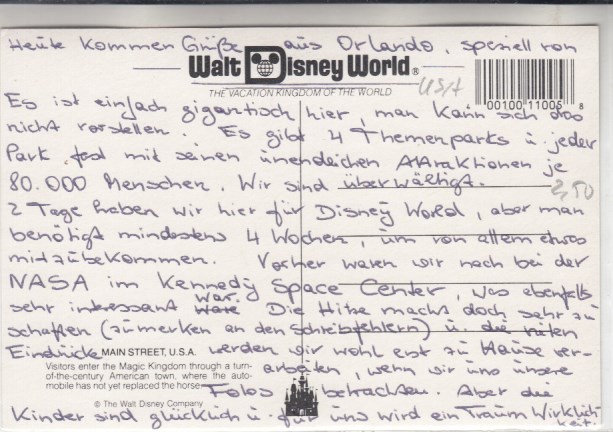 Heute kommen Grüße aus Orlando, speziell von
Walt Disney World®
THE VACATION KINGDOM OF THE WORLD
USA
4 00100 11006 8
Es ist einfach gigantisch hier, man kann sich das
nicht vorstellen. Es gibt 4 Themenparks u. jeder
Park fast mit seinen unendlichen Attraktionen je
80.000 Menschen. Wir sind überwältigt.
2,50
2 Tage haben wir hier für Disney World, aber man
benötigt mindestens 4 Wochen, um von allem etwas
mitzubekommen. Vorher waren wir noch bei der
NASA im Kennedy Space Center, was ebenfalls
sehr interessant ware war. Die Hitze macht doch sehr zu
schaffen (zu merken an den Schreibfehlern) u. die vielen
Eindrücke werden wir wohl erst zu Hause ver-
arbeiten, wenn wir uns unsere
Fotos betrachten. Aber die
Kinder sind glücklich u. für uns wird ein Traum Wirklich
keit.
MAIN STREET, U.S.A.
Visitors enter the Magic Kingdom through a turn-
of-the-century American town, where the auto-
mobile has not yet replaced the horse.
© The Walt Disney Company